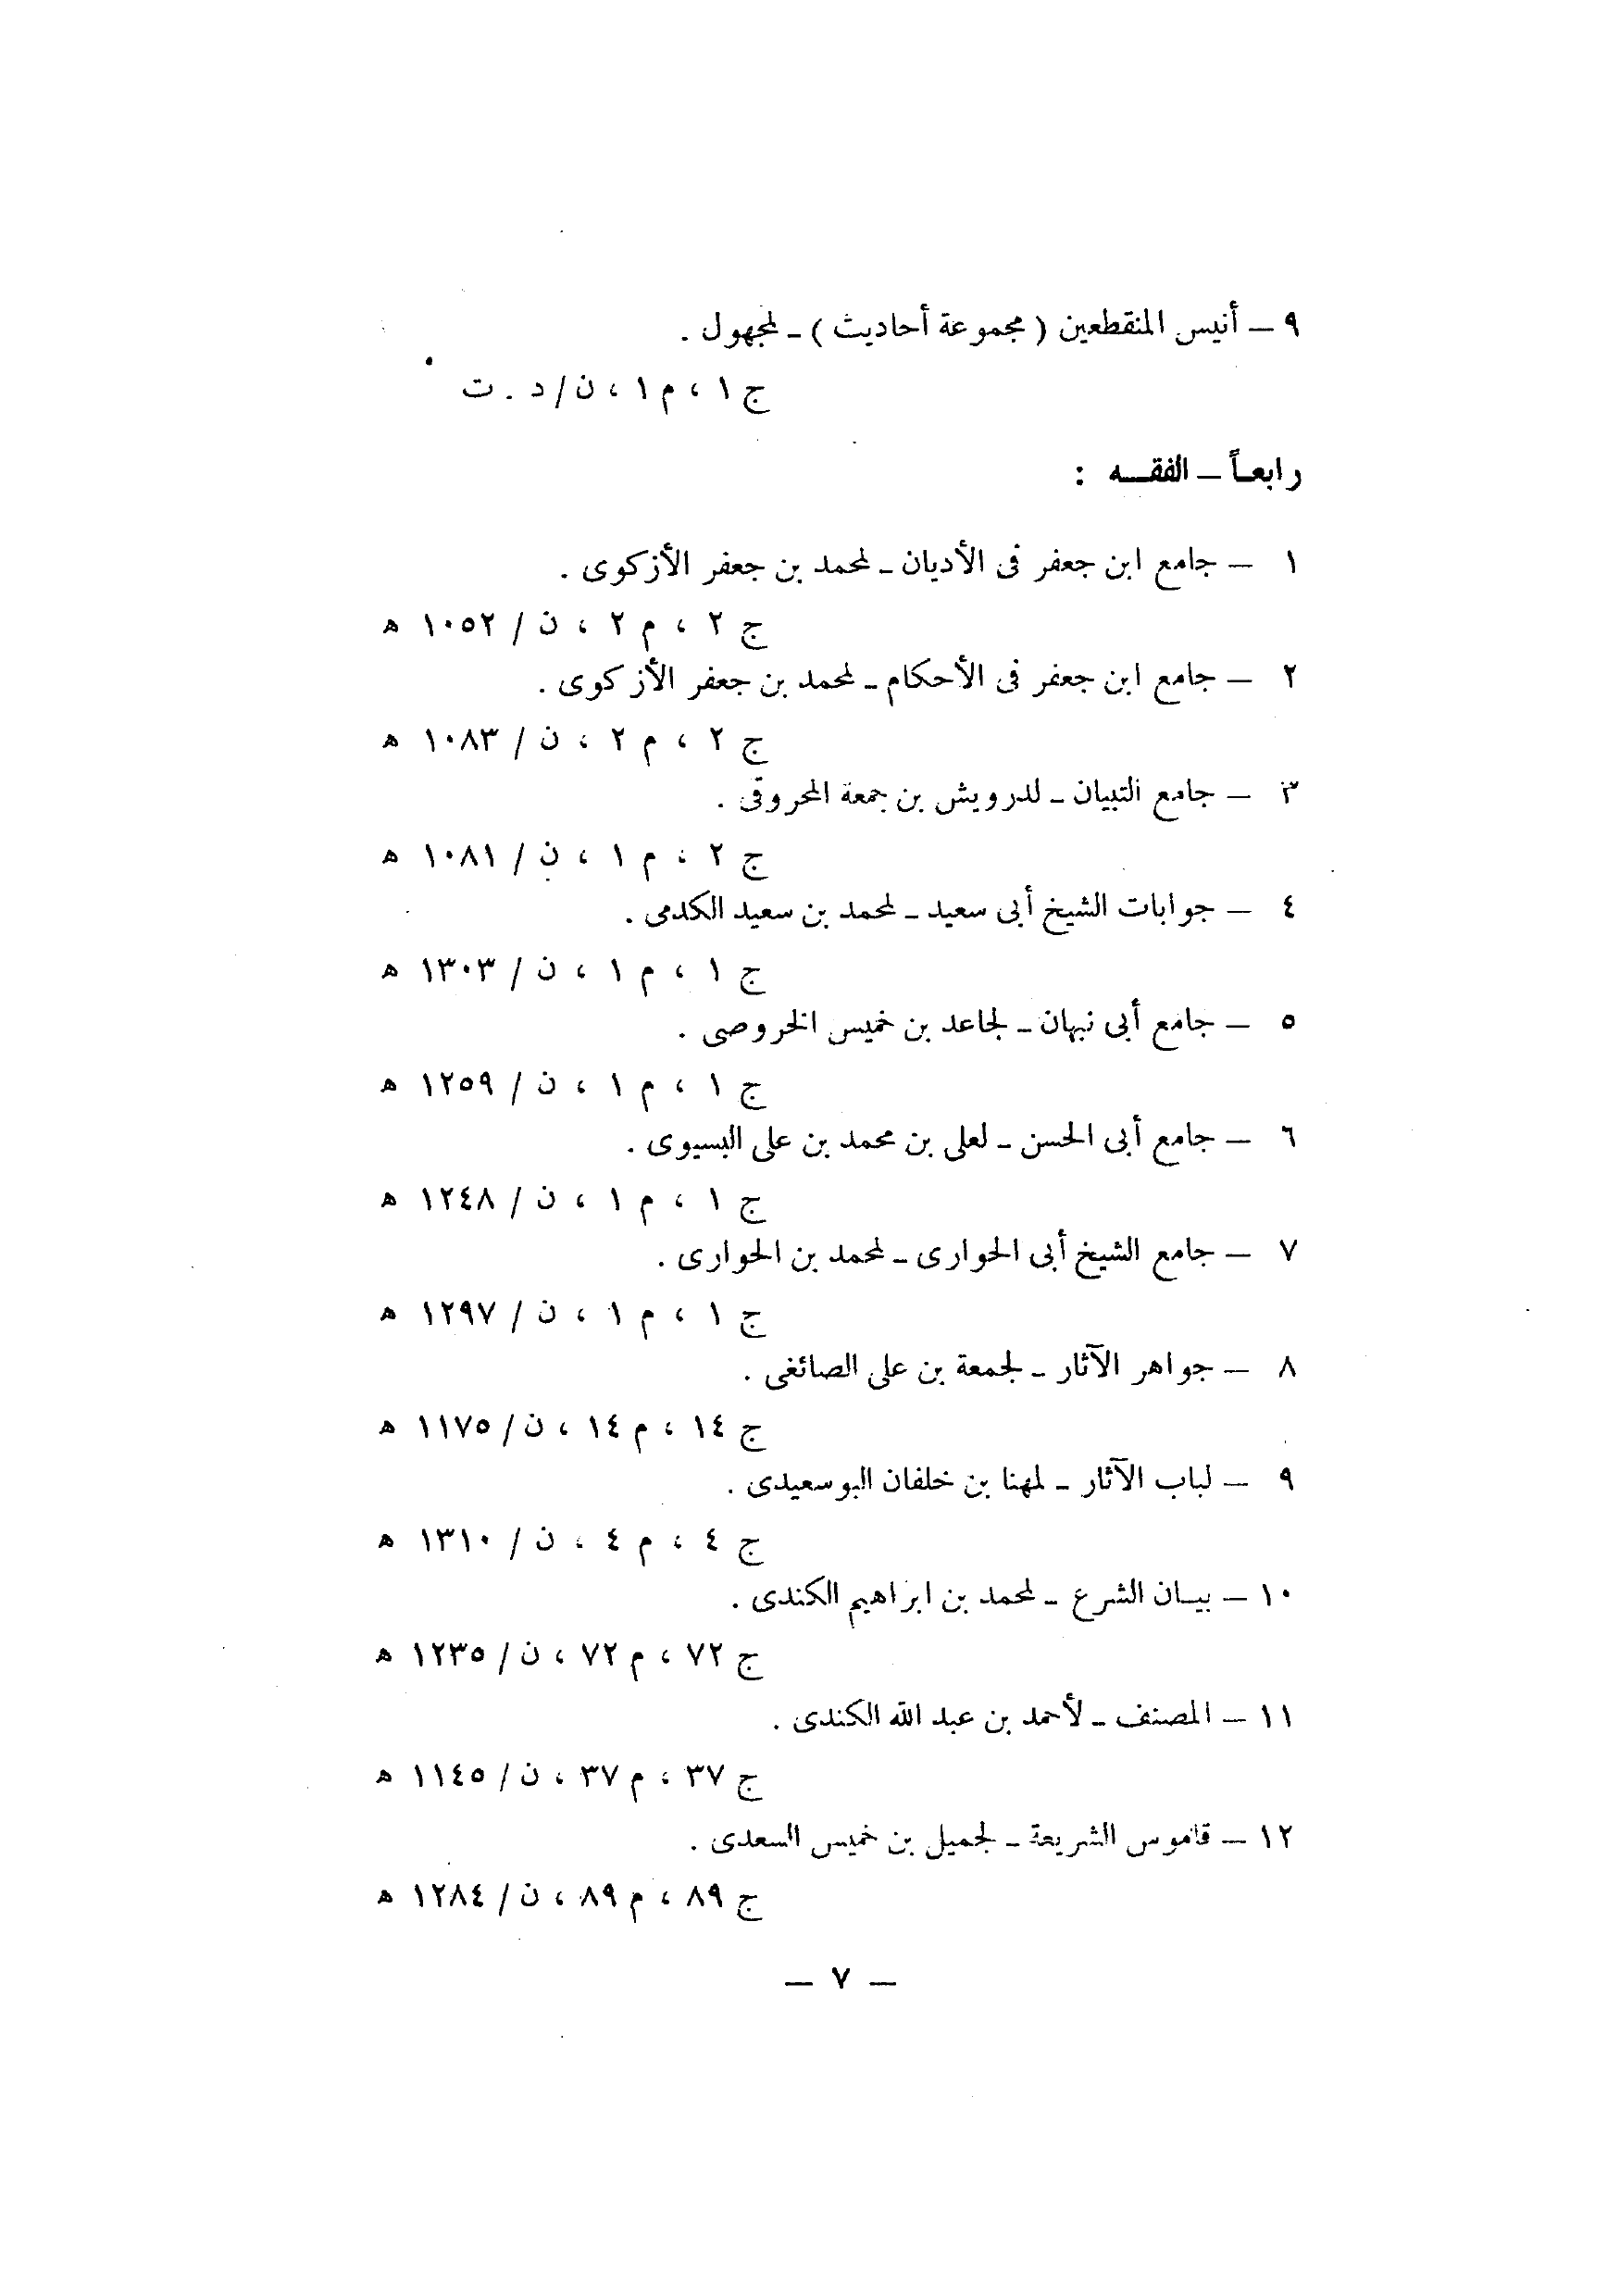 ٩ – أنيس المنقطعين ( مجموعة أحاديث ) – لمجهول .
ج ١ ، م ١ ، ن / د . ت
رابعـاً – الفقـــه :
١ – جامع ابن جعفر فى الأديان – لمحمد بن جعفر الأزكوى .
ج ٢ ، م ٢ ، ن / ١٠٥٢ ه
٢ – جامع ابن جعفر فى الأحكام – لمحمد بن جعفر الأزكوى .
ج ٢ ، م ٢ ، ن / ١٠٨٣ ه
٣ – جامع التبيان – لدرويش بن جمعة المحروقى .
ج ٢ ، م ١ ، ن / ١٠٨١ ه
٤ – جوابات الشيخ أبى سعيد – لمحمد بن سعيد الكدمى .
ج ١ ، م ١ ، ن / ١٣٠٣ ه
٥ – جامع أبى نبهان – لجاعد بن خميس الخروصى .
ج ١ ، م ١ ، ن / ١٢٥٩ ه
٦ – جامع أبى الحسن – لعلى بن محمد بن على البسيوى .
ج ١ ، م ١ ، ن / ١٢٤٨ ه
٧ – جامع الشيخ أبى الحوارى – لمحمد بن الحوارى .
ج ١ ، م ١ ، ن / ١٢٩٧ ه
٨ – جواهر الآثار – لجمعة بن على الصائغى .
ج ١٤ ، م ١٤ ، ن / ١١٧٥ ه
٩ – لباب الآثار – لمهنا بن خلفان البوسعيدى .
ج ٤ ، م ٤ ، ن / ١٣١٠ ه
١٠ – بيـان الشرع – لمحمد بن ابراهيم الكندى .
ج ٧٢ ، م ٧٢ ، ن / ١٢٣٥ ه
١١ – المصنف – لأحمد بن عبد الله الكندى .
ج ٣٧ ، م ٣٧ ، ن / ١١٤٥ ه
١٢ – قاموس الشريعة – لجميل بن خميس السعدى .
ج ٨٩ ، م ٨٩ ، ن / ١٢٨٤ ه
– ٧ –